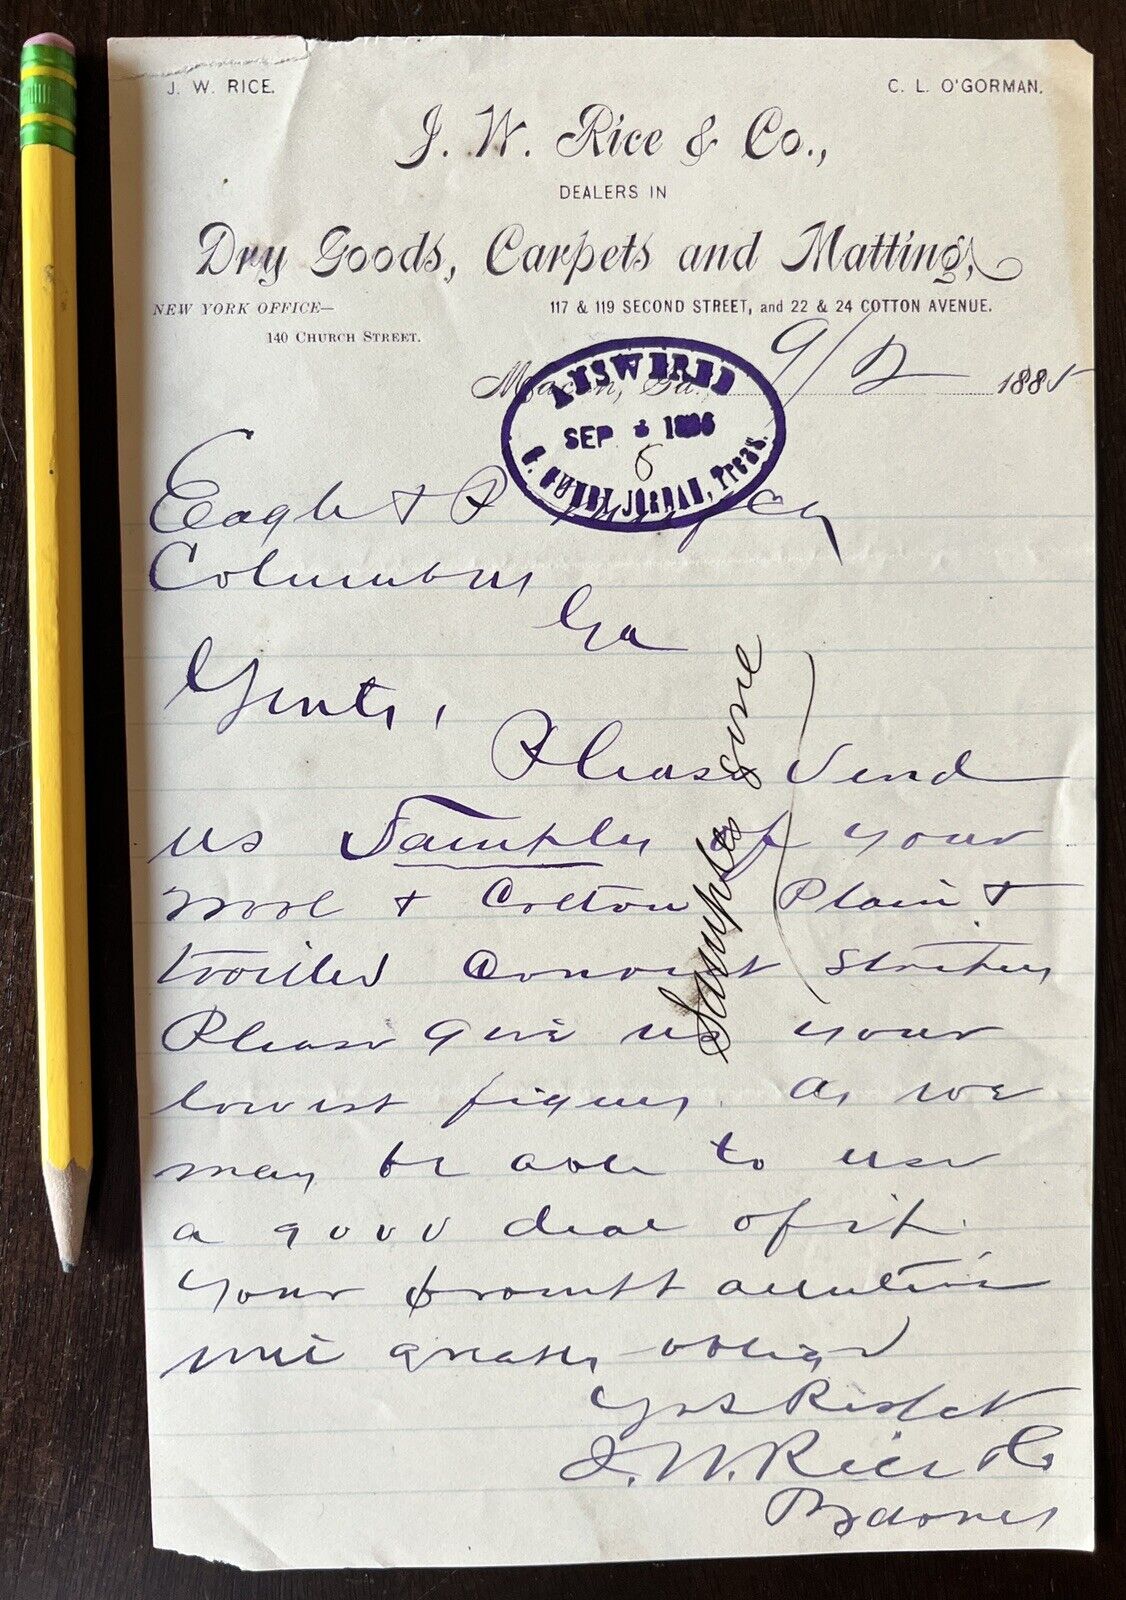 J. W. RICE. C. L. O'GORMAN.
J. W. Rice & Co.,
DEALERS IN
Dry Goods, Carpets and Matting,
NEW YORK OFFICE— 117 & 119 SECOND STREET, and 22 & 24 COTTON AVENUE.
140 CHURCH STREET.
Macon, Ga., 9/2 1885
ANSWERED
SEP 1886
G. GUNBY JORDAN, Treas.
Eagle & P Co
Columbus
Ga
Gents,
Please send
us Samples of your
wool & Cotton Plain &
twilled Convict Stripes
Please give us your
lowest figures. As we
may be able to use
a good deal of it.
Your prompt attention
will greatly oblige
Yrs Respct
J. W. Rice & Co
Samples sine